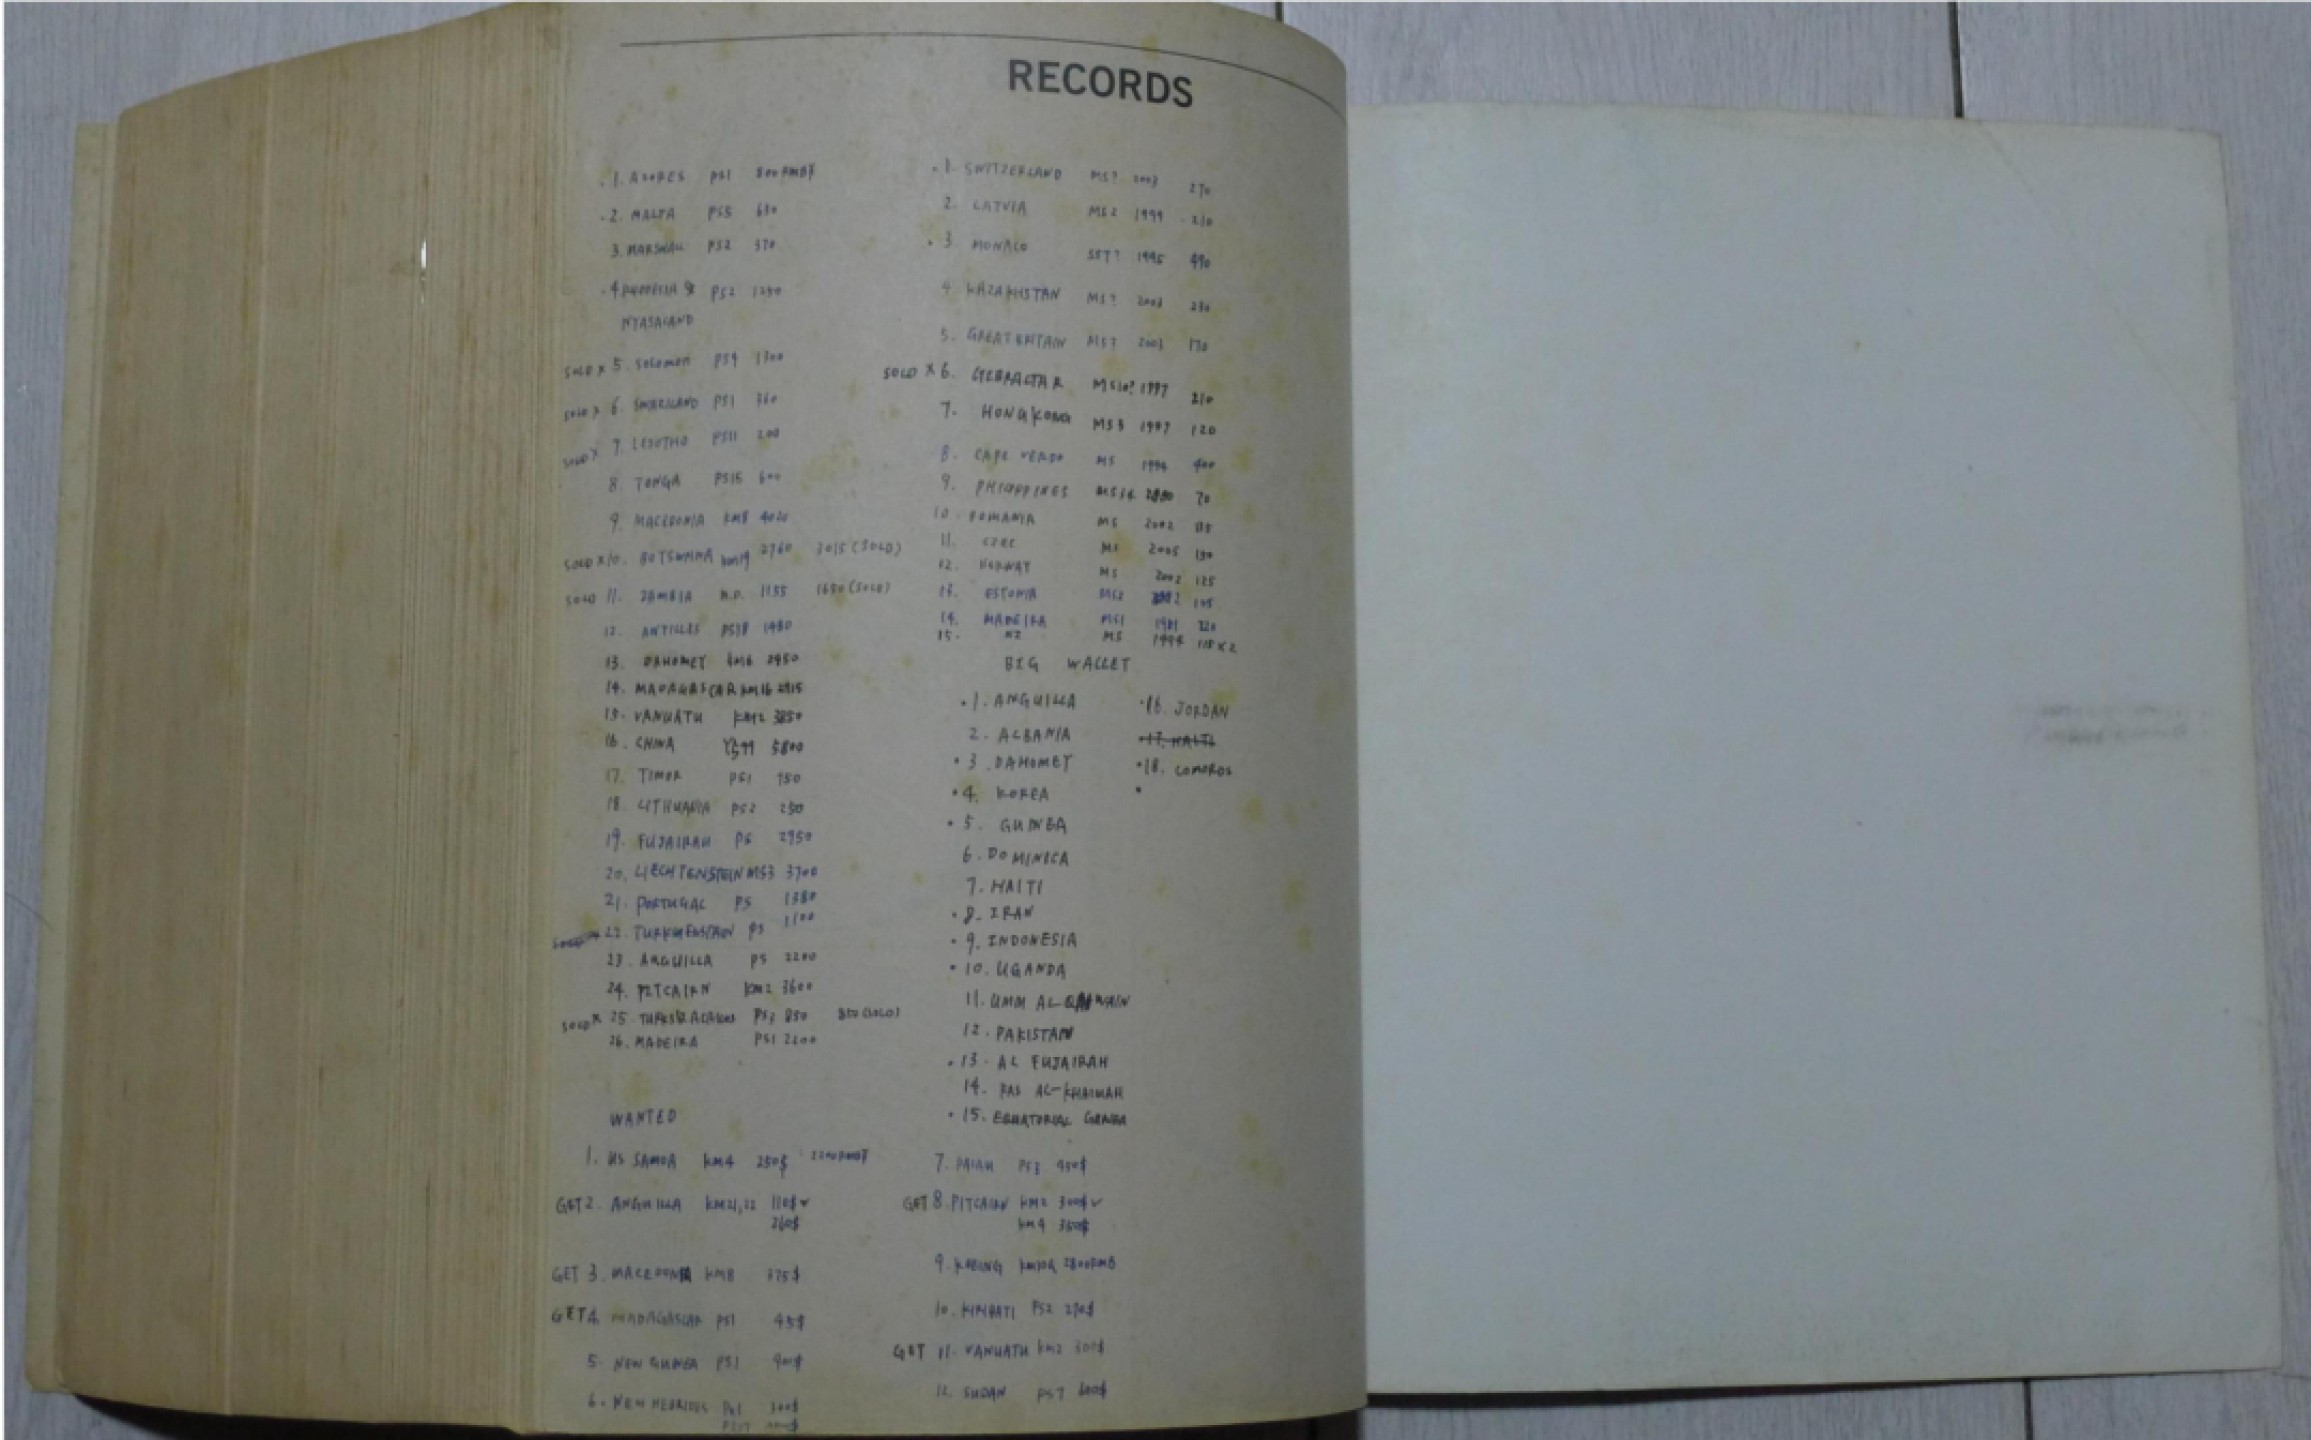 RECORDS
. 1. AZORES PS1 800RMB
. 2. MALTA PS5 650
3. MARSHALL PS2 370
. 4 RHODESIA & PS2 1250
NYASALAND
SOLD x 5. SOLOMON PS4 1300
SOLD x 6. SWAZILAND PS1 360
SOLD x 7. LESOTHO PS11 200
8. TONGA PS15 600
9. MACEDONIA KM8 4020
SOLD x 10. BOTSWANA KM19 2760 3015 (SOLD)
SOLD 11. ZAMBIA 1155 1650 (SOLD)
12. ANTILLES PS18 1480
13. DAHOMEY KM6 2950
14. MADAGASCAR KM16 2915
15. VANUATU KM2 3850
16. CHINA 5800
17. TIMOR PS1 750
18. LITHUANIA PS2 250
19. FUJAIRAH PS 2950
20. LIECHTENSTEIN MS3 3700
21. PORTUGAL PS 1380
22. TURKMENSTAIN PS 1100
23. ANGUILLA PS 2200
24. PITCAIRN KM2 3600
SOLD x 25. PS3 850 850 (SOLD)
26. MADEIRA PS1 2200
. 1. SWITZERLAND MS? 2003 270
2. LATVIA MS2 1999 . 210
. 3 MONACO SET? 1995 490
4. KAZAKHSTAN MS? 2003 230
5. GREAT BRITAIN MS? 2003 170
SOLD x 6. GIBRALTAR MS10? 1997 210
7. HONGKONG MS3 1997 120
8. CAPE VERDO MS 1994 400
9. PHILIPPINES MS34 70
10. ROMANIA MS 2002 135
11. CZEC MS 2005 130
12. NORWAY MS 2002 125
13. ESTONIA MS2 105
14. MADEIRA MS1 1981 220
15. NZ MS 1994 115x2
BIG WALLET
. 1. ANGUILLA
2. ALBANIA
. 3. DAHOMEY
. 4. KOREA
. 5. GUINEA
6. DOMINICA
7. HAITI
. 8. IRAN
. 9. INDONESIA
. 10. UGANDA
11. UMM AL QAIWAIN
12. PAKISTAN
. 13. AL FUJAIRAH
14. RAS AL-KHAIMAH
. 15. EQUATORIAL GUINEA
. 16. JORDAN
. 17. HAITI
. 18. COMOROS
WANTED
1. US SAMOA KM4 250$ 2200RMB
GET 2. ANGUILLA KM21,22 110$ ✓
260$
GET 3. MACEDONIA KM8 375$
GET 4. MADAGASCAR PS1 45$
5. NEW GUINEA PS1 900$
6. NEW HEBRIDES PS1 300$
7. PALAU PS3 450$
GET 8. PITCAIRN KM2 300$ ✓
KM4 350$
9. 2800RMB
10. KIRIBATI PS2 270$
GET 11. VANUATU KM2 300$
12. SUDAN PS7 600$